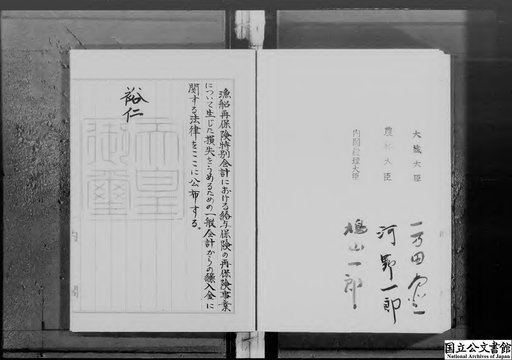 大蔵大臣
一万田尚登
農林大臣
河野一郎
内閣総理大臣
鳩山一郎
漁船再保険特別会計における給与保険の再保険事業
について生じた損失をうめるための一般会計からの繰入金に
関する法律をここに公布する。
裕仁
天皇
御璽
国立公文書館
National Archives of Japan